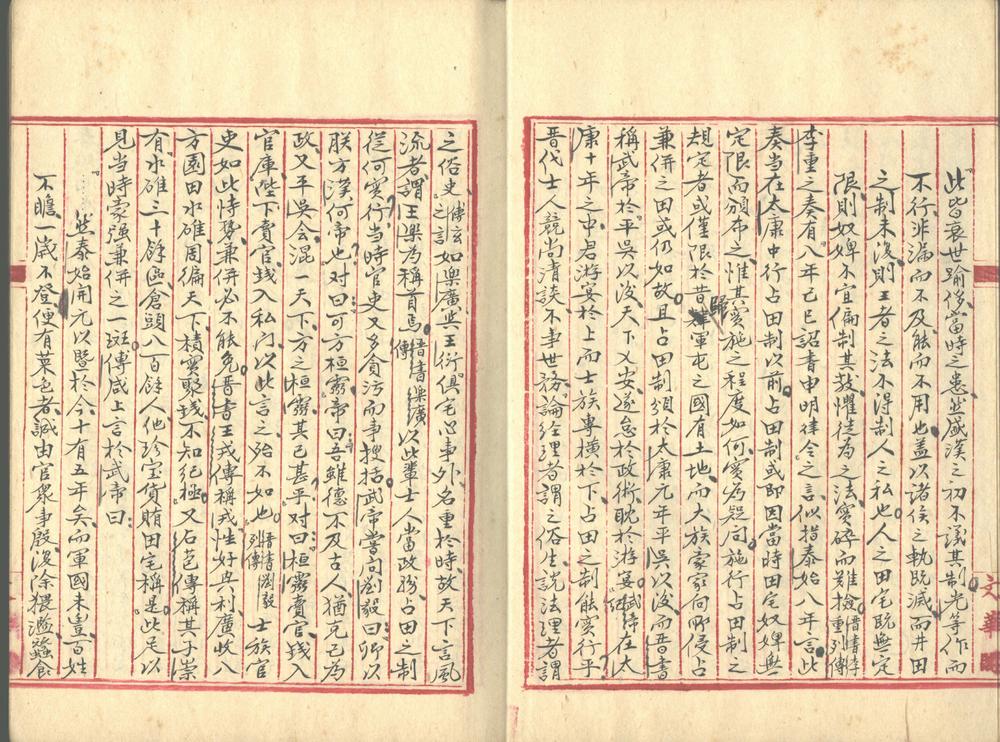 此皆衰世踰侈當時之患然盛漢之初不議其制光等作而
不行非漏而不及能而不用也蓋以諸侯之軌既滅而井田
之制未復則王者之法不得制人之私也人之田宅既無定
限則奴婢不宜偏制其數懼徒為之法實碎而難檢 晉書李重列傳
李重之奏有八年已巳詔書申明律令之言似指泰始八年言此
奏當在太康中行占田制以前占田制或即因當時田宅奴婢無
定限而頒布之惟其實施之程度如何實為疑問施行占田制之
規定者或僅限於昔 歸 軍屯之國有土地而大族豪家向所侵占
兼併之田或仍如故且占田制頒於太康元年平吳以後而晉書
稱武帝於平吳以後天下乂安遂怠於政術耽於游宴 武帝紀 在太
康十年之中君游宴於上而士族專橫於下占田之制能實行乎
晉代士人競尚清談不事世務論經理者謂之俗生說法理者謂
之俗吏 傅玄之言 如樂廣與王衍俱宅心事外名重於時故天下言風
流者謂王樂為稱首焉 晉書樂廣傳 以此輩士人當政務占田之制
從何實行當時官吏又多貪污而事搜括武帝嘗問劉毅曰卿以
朕方漢何帝也對曰可方桓靈帝曰吾雖德不及古人猶克己為
政又平吳會混一天下方之桓靈其已甚乎對曰桓靈賣官錢入
官庫陛下賣官錢入私門以此言之殆不如也 晉書劉毅列傳 士族官
吏如此恃勢兼併必不能免晉書王戎傳稱戎性好興利廣收八
方園田水碓周徧天下積實聚錢不知紀極又石苞傳稱其子崇
有水碓三十餘區倉頭八百餘人他珍寶貨賄田宅稱是此足以
見当時豪强兼併之一斑傅咸上言於武帝曰
然泰始開元以暨於今十有五年矣而軍國未豊百姓
不贍一歲不登便有菜色者誠由官衆事殷復除猥濫蠶食
文華